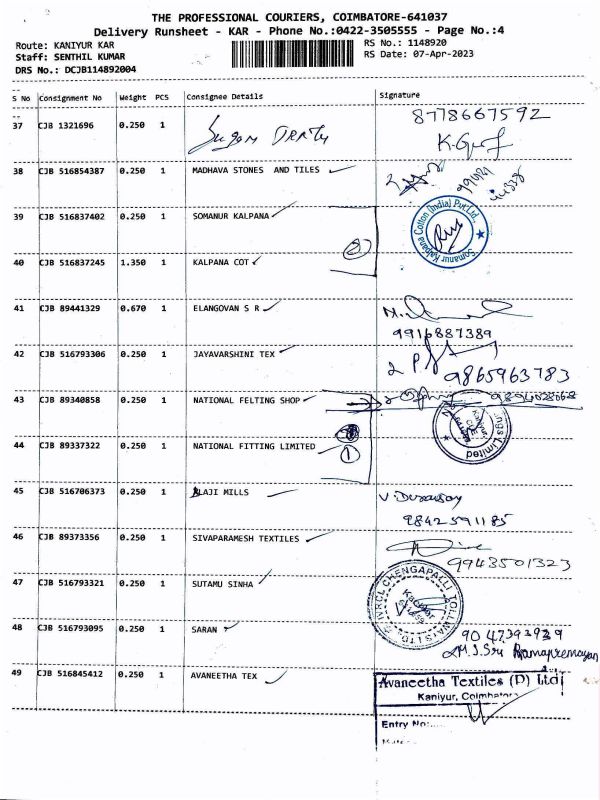 THE PROFESSIONAL COURIERS, COIMBATORE-641037
Delivery Runsheet - KAR - Phone No.:0422-3505555 - Page No.:4
Route: KANIYUR KAR RS No.: 1148920
Staff: SENTHIL KUMAR RS Date: 07-Apr-2023
DRS No.: DCJB114892004
S No Consignment No Weight PCS Consignee Details Signature
37 CJB 1321696 0.250 1 8778667592
38 CJB 516854387 0.250 1 MADHAVA STONES AND TILES
39 CJB 516837402 0.250 1 SOMANUR KALPANA
Somanur Kalpana Cotton (India) Pvt Ltd.
40 CJB 516837245 1.350 1 KALPANA COT
41 CJB 89441329 0.670 1 ELANGOVAN S R
9916887389
42 CJB 516793306 0.250 1 JAYAVARSHINI TEX
9865963783
43 CJB 89340858 0.250 1 NATIONAL FELTING SHOP
44 CJB 89337322 0.250 1 NATIONAL FITTING LIMITED
1
Limited
45 CJB 516706373 0.250 1 LAJI MILLS
V. Duraisay
9842591185
46 CJB 89373356 0.250 1 SIVAPARAMESH TEXTILES
9943501323
47 CJB 516793321 0.250 1 SUTAMU SINHA
IVRCL CHENGAPALLI TOLLWAYS LTD
48 CJB 516793095 0.250 1 SARAN
9047393939
49 CJB 516845412 0.250 1 AVANEETHA TEX
Avaneetha Textiles (P) Ltd
Kaniyur, Coimbatore
Entry No: